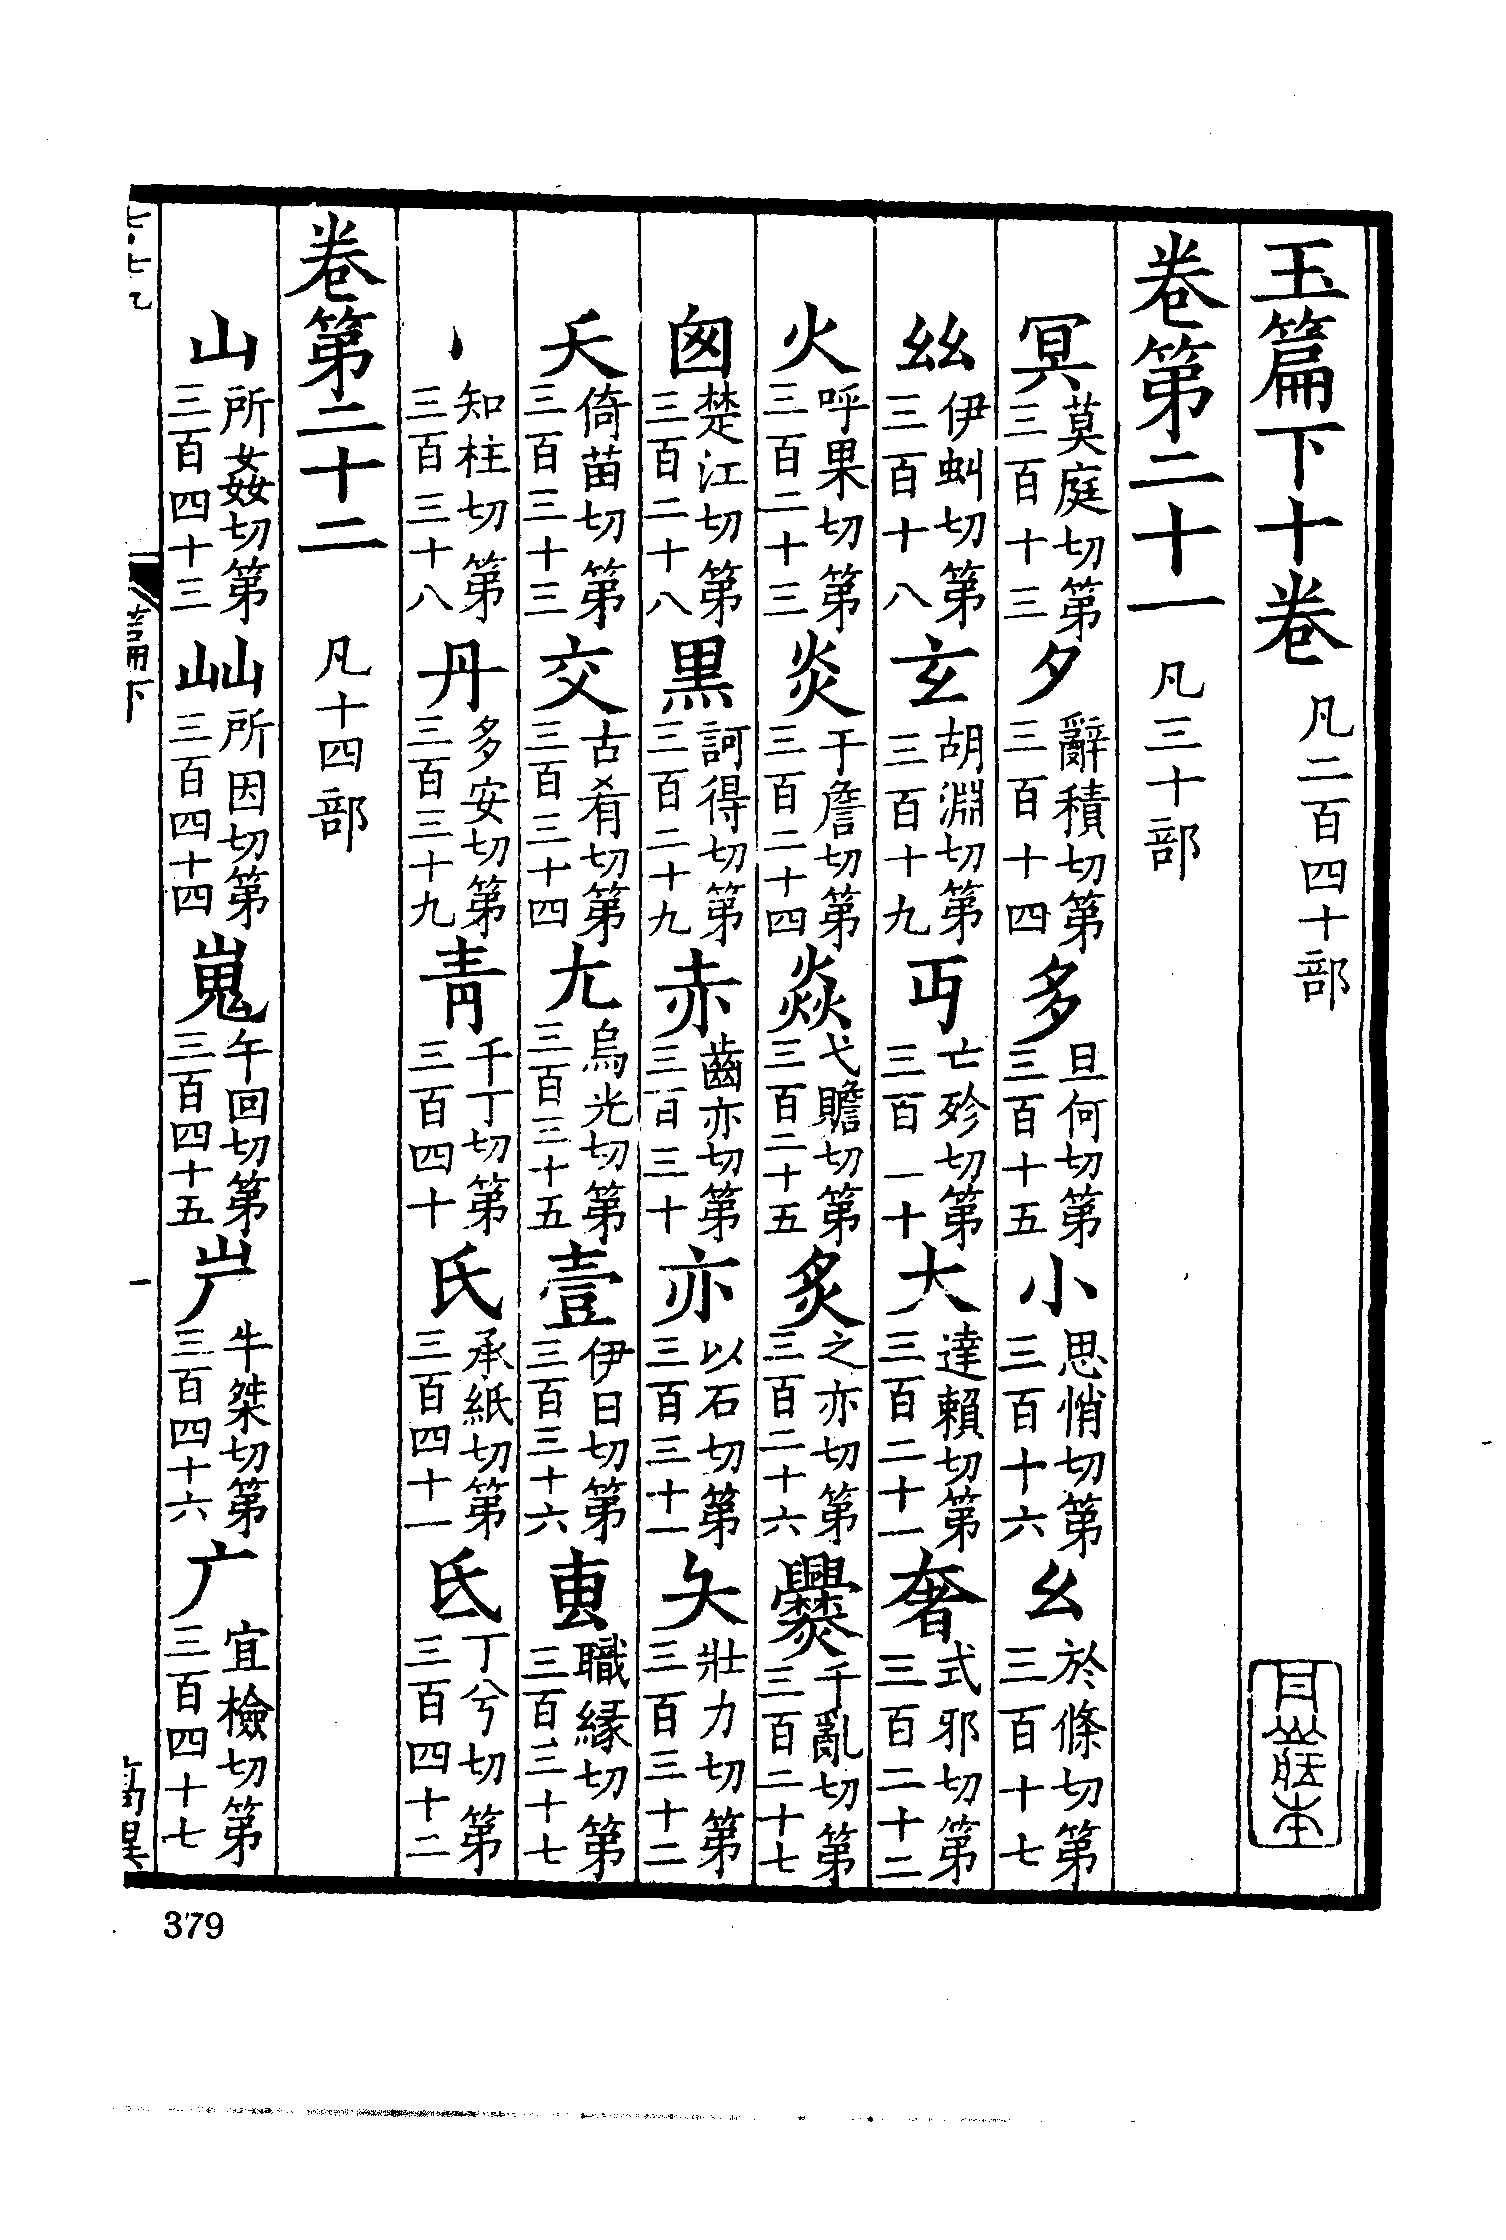 玉篇下十卷 凡二百四十部
卷第二十一 凡三十部
冥莫庭切第三百十三 夕辭積切第三百十四 多旦何切第三百十五 小思悄切第三百十六 幺於條切第三百十七
𢆶伊虯切第三百十八 玄胡淵切第三百十九 丏亡殄切第三百二十 大達賴切第三百二十一 奢式邪切第三百二十二
火呼果切第三百二十三 炎于詹切第三百二十四 焱弋贍切第三百二十五 炙之亦切第三百二十六 爨千亂切第三百二十七
囱楚江切第三百二十八 黒訶得切第三百二十九 赤齒亦切第三百三十 亦以石切第三百三十一 夨壯力切第三百三十二
夭倚苗切第三百三十三 交古肴切第三百三十四 尢烏光切第三百三十五 壹伊日切第三百三十六 叀職緣切第三百三十七
丶知柱切第三百三十八 丹多安切第三百三十九 靑千丁切第三百四十 氏承紙切第三百四十一 氐丁兮切第三百四十二
卷第二十二 凡十四部
山所姦切第三百四十三 屾所因切第三百四十四 嵬午回切第三百四十五 屵牛桀切第三百四十六 广宜檢切第三百四十七
篇下
一
379